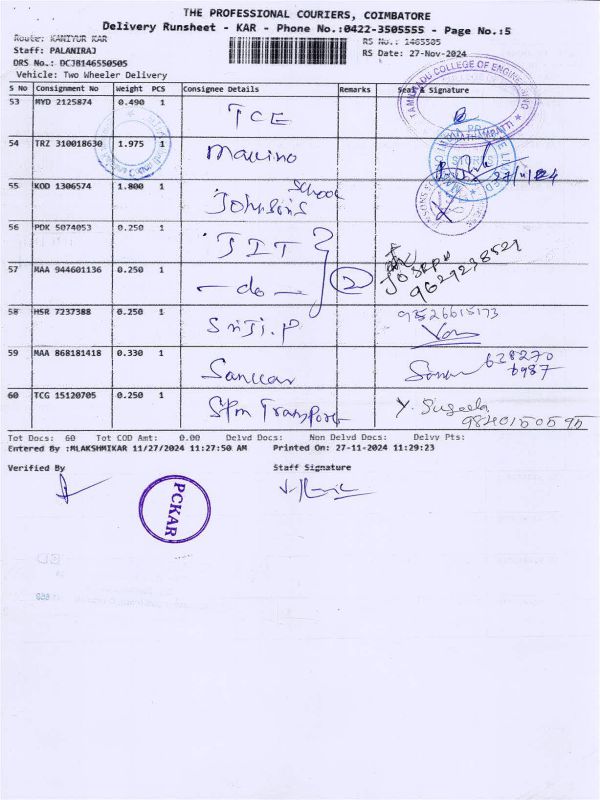 THE PROFESSIONAL COURIERS, COIMBATORE
Delivery Runsheet - KAR - Phone No.:0422-3505555 - Page No.:5
Route: KANIYUR KAR
RS No.: 1465505
Staff: PALANIRAJ
RS Date: 27-Nov-2024
DRS No.: DCJB146550505
Vehicle: Two Wheeler Delivery
S No Consignment No Weight PCS Consignee Details Remarks Seal & Signature
TAMILNADU COLLEGE OF ENGINEERING
53 MYD 2125874 0.490 1 TCE
54 TRZ 310018630 1.975 1 Marino
STORES
27/11/24
55 KOD 1306574 1.800 1 Johnsons School
56 PDK 5074053 0.250 1 JIT
57 MAA 944601136 0.250 1 - do - 2
9629238529
58 HSR 7237388 0.250 1 SriJi.P
59 MAA 868181418 0.330 1 Sankar
638270
6987
60 TCG 15120705 0.250 1 Spm Transport Y. Suseela
Tot Docs: 60 Tot COD Amt: 0.00 Delvd Docs: Non Delvd Docs: Delvy Pts:
Entered By :MLAKSHMIKAR 11/27/2024 11:27:50 AM Printed On: 27-11-2024 11:29:23
Verified By Staff Signature
PCKAR